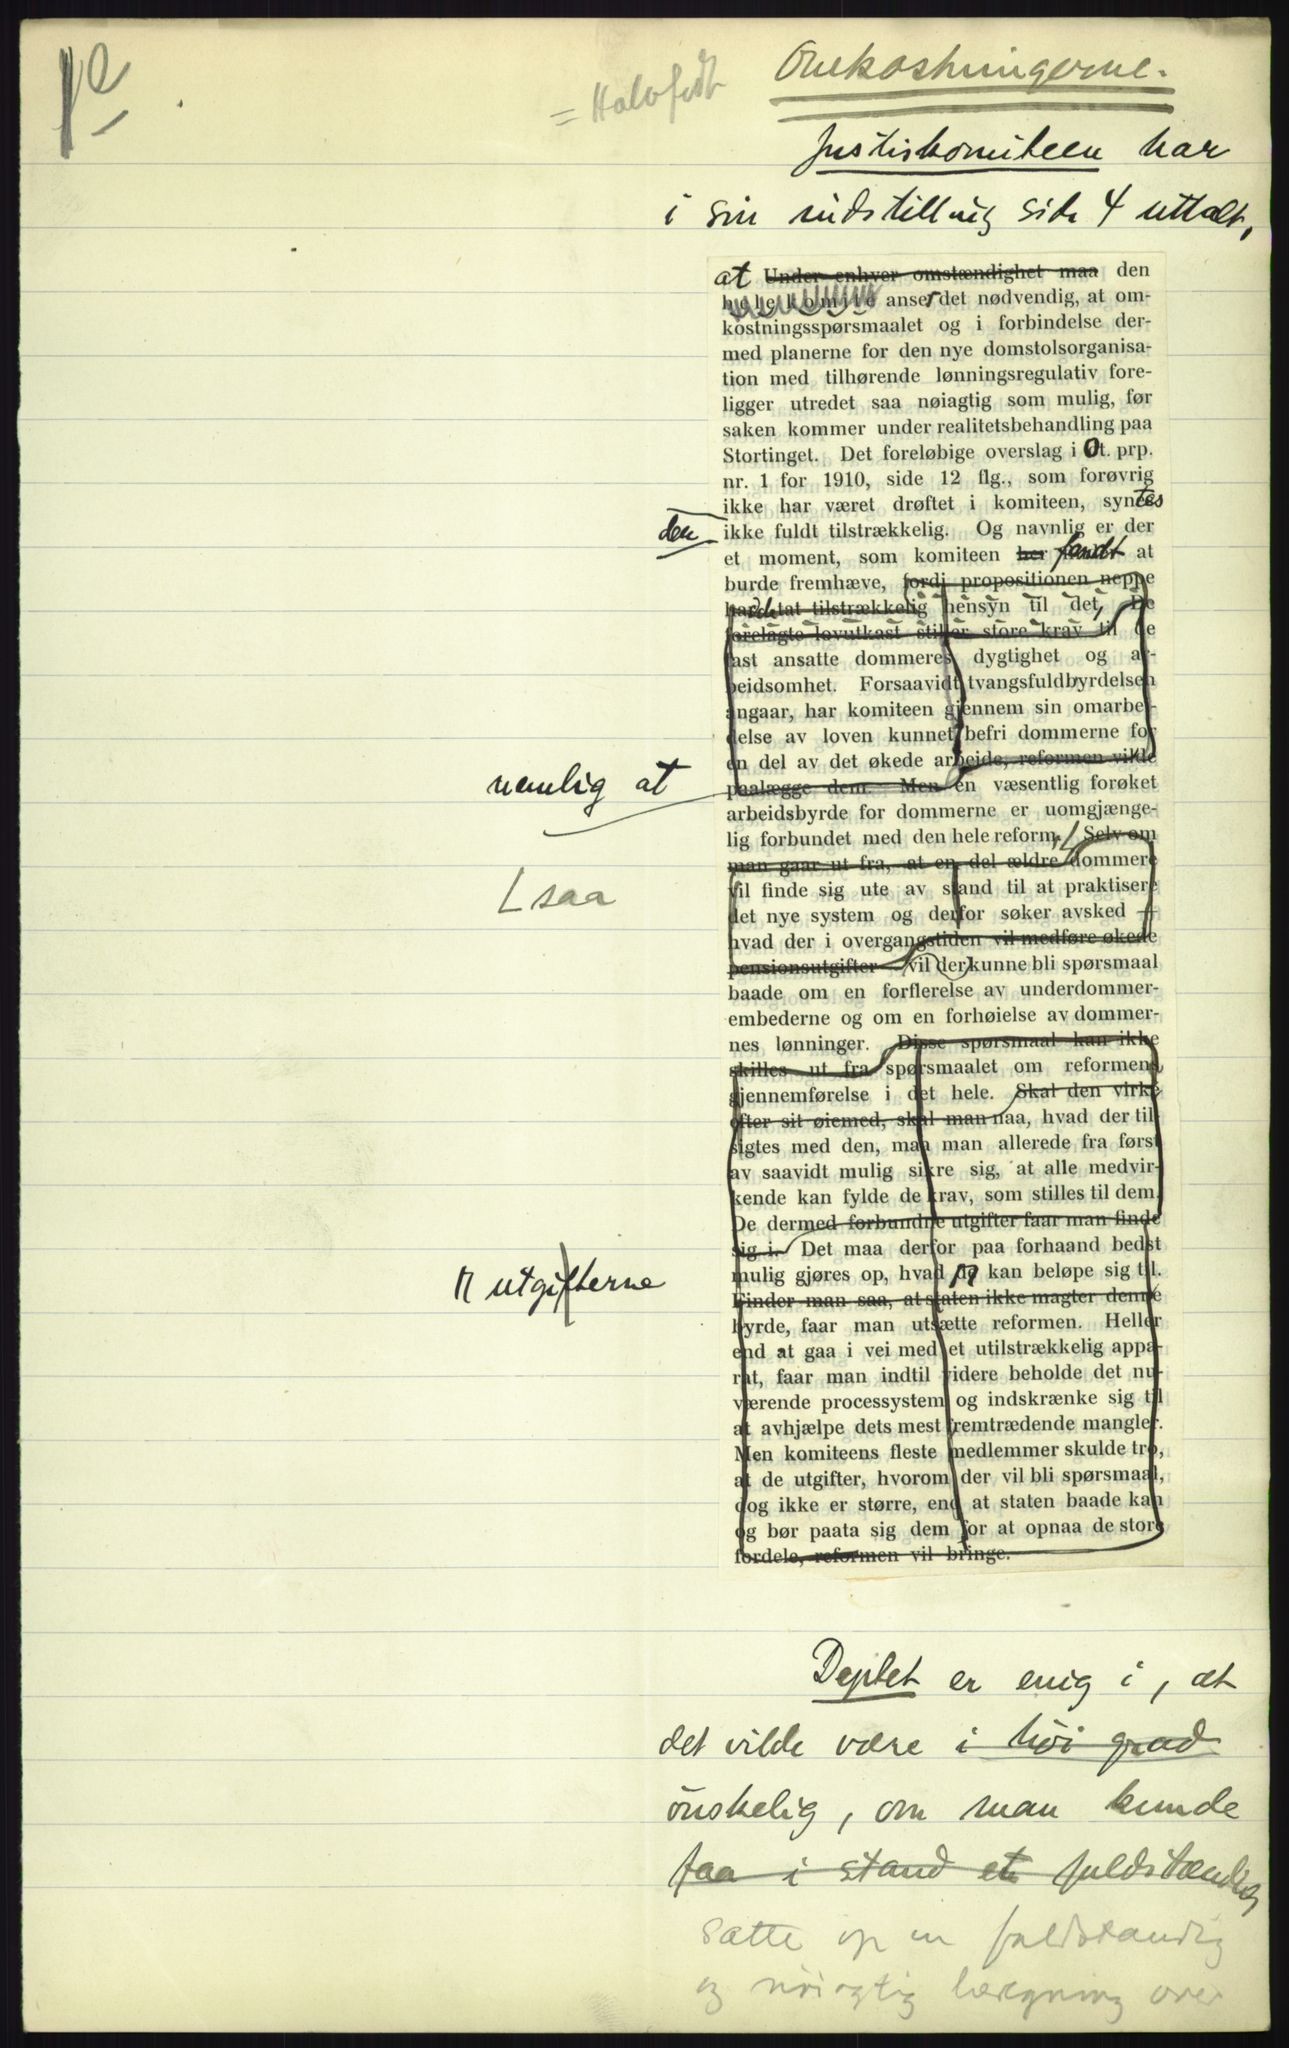 = Halvfedt
Omkostningerne.
Justiskomiteen har
i sin indstilling side 4 uttalt,
at Under enhver omstændighet maa den
hele komite anser det nødvendig, at om-
kostningsspørsmaalet og i forbindelse der-
med planerne for den nye domstolsorganisa-
tion med tilhørende lønningsregulativ fore-
ligger utredet saa nøiagtig som mulig, før
saken kommer under realitetsbehandling paa
Stortinget. Det foreløbige overslag i Ot. prp.
nr. 1 for 1910, side 12 flg., som forøvrig
ikke har været drøftet i komiteen, syntes
den
ikke fuldt tilstrækkelig. Og navnlig er der
et moment, som komiteen her fandt at
burde fremhæve, fordi propositionen neppe
hadde tat tilstrækkelig hensyn til det, De
forelagte lovutkast stiller store krav til de
fast ansatte dommeres dygtighet og ar-
beidsomhet. Forsaavidt tvangsfuldbyrdelsen
angaar, har komiteen gjennem sin omarbei-
delse av loven kunnet befri dommerne for
en del av det økede arbeide, reformen vilde
nemlig at
paalægge dem. Men en væsentlig forøket
arbeidsbyrde for dommerne er uomgjænge-
lig forbundet med den hele reform, Selv om
man gaar ut fra, at en del ældre dommere
saa
vil finde sig ute av stand til at praktisere
det nye system og derfor søker avsked —
hvad der i overgangstiden vil medføre økede
pensionsutgifter — vil der kunne bli spørsmaal
baade om en forflerelse av underdommer-
embederne og om en forhøielse av dommer-
nes lønninger. Disse spørsmaal kan ikke
skilles ut fra spørsmaalet om reformens
gjennemførelse i det hele. Skal den virke
efter sit øiemed, skal man naa, hvad der til-
sigtes med den, maa man allerede fra først
av saavidt mulig sikre sig, at alle medvir-
kende kan fylde de krav, som stilles til dem.
De dermed forbundne utgifter faar man finde
sig i. Det maa derfor paa forhaand bedst
utgifterne
mulig gjøres op, hvad de kan beløpe sig til.
Finder man saa, at staten ikke magter denne
byrde, faar man utsætte reformen. Heller
end at gaa i vei med et utilstrækkelig appa-
rat, faar man indtil videre beholde det nu-
værende processystem og indskrænke sig til
at avhjælpe dets mest fremtrædende mangler.
Men komiteens fleste medlemmer skulde tro,
at de utgifter, hvorom der vil bli spørsmaal,
dog ikke er større, end at staten baade kan
og bør paata sig dem for at opnaa de store
fordele, reformen vil bringe.
Deptet er enig i, at
det vilde være i høi grad
ønskelig, om man kunde
faa i stand et fuldstændig
sætte op en fuldstændig
og nøiagtig beregning over